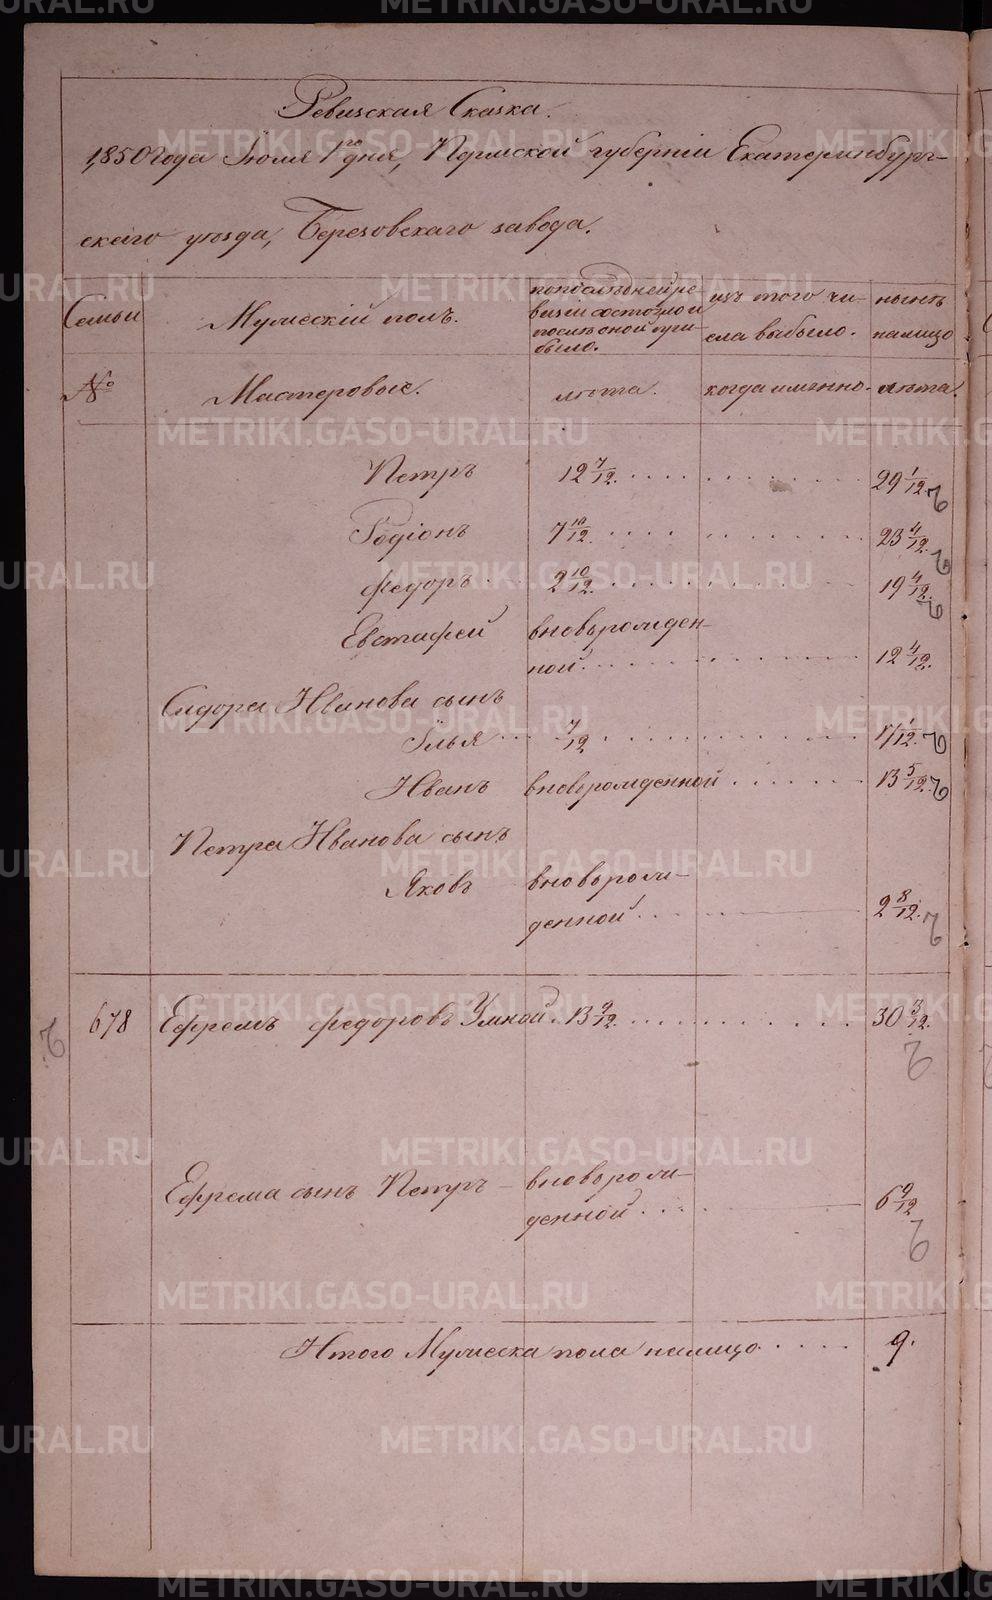 Ревизская Сказка.
1850 года Іюля 1го дня, Пермской губерніи Екатеринбург-
скаго уѣзда, Березовскаго завода.
Семьи
Мужескій полъ.
попослѣдней ре-
визіи состояло и
послѣ оной при-
было.
изъ того чи-
сла выбыло.
нынѣ
налицо
№
Мастеровые.
лѣта.
когда именно.
лѣта.
Петръ 12 7/12. 29 1/12.
Родіонъ 7 10/12. 23 4/12.
Федоръ 2 10/12. 19 4/12.
Евстафей вновьрожден-
ной. 12 4/12.
Сидора Иванова сынъ
Илья 7/12 17 1/12.
Иванъ вновьрожденной 13 5/12.
Петра Иванова сынъ
Яковъ вновьрож-
денной 2 8/12.
678 Ефремъ Федоровъ Умной. 13 9/12. 30 3/12.
Ефрема сынъ Петръ – вновьрож-
денной 6 9/12
Итого Мужеска пола налицо 9.
METRIKI.GASO-URAL.RU